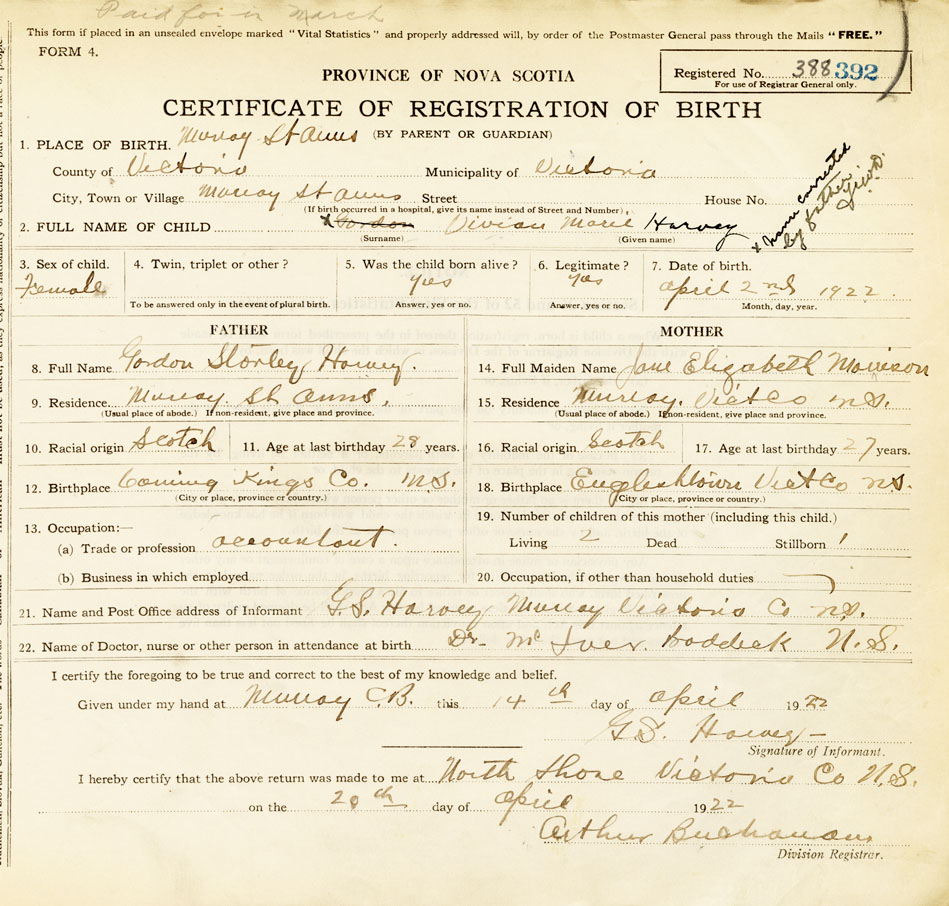 Paid for in March
This form if placed in an unsealed envelope marked "Vital Statistics" and properly addressed will, by order of the Postmaster General pass through the Mails "FREE."
FORM 4.
Registered No. 388 392
For use of Registrar General only.
PROVINCE OF NOVA SCOTIA
CERTIFICATE OF REGISTRATION OF BIRTH
(BY PARENT OR GUARDIAN)
1. PLACE OF BIRTH. Murray St Anns
County of Victoria Municipality of Victoria
City, Town or Village Murray St Anns Street House No.
(If birth occurred in a hospital, give its name instead of Street and Number)
2. FULL NAME OF CHILD x Gordon Vivian Marie Harvey
(Surname) (Given name)
x Name corrected
by father
3. Sex of child. 4. Twin, triplet or other? 5. Was the child born alive? 6. Legitimate? 7. Date of birth.
Female yes yes April 2nd 1922
To be answered only in the event of plural birth. Answer, yes or no. Answer, yes or no. Month, day, year.
FATHER MOTHER
8. Full Name Gordon Storley Harvey. 14. Full Maiden Name Jane Elizabeth Morrison
9. Residence Murray. St Anns. 15. Residence Murray. Vict Co N.S.
(Usual place of abode.) If non-resident, give place and province. (Usual place of abode.) If non-resident, give place and province.
10. Racial origin Scotch 11. Age at last birthday 28 years. 16. Racial origin Scotch 17. Age at last birthday 27 years.
12. Birthplace Coming Kings Co. N.S. 18. Birthplace Englishtown Vict Co N.S.
(City or place, province or country.) (City or place, province or country.)
13. Occupation:— 19. Number of children of this mother (including this child.)
(a) Trade or profession accountant. Living 2 Dead Stillborn 1
(b) Business in which employed 20. Occupation, if other than household duties
21. Name and Post Office address of Informant G.S. Harvey Murray Victoria Co N.S.
22. Name of Doctor, nurse or other person in attendance at birth Dr. Mc Iver. Baddeck N.S.
I certify the foregoing to be true and correct to the best of my knowledge and belief.
Given under my hand at Murray C.B. this 14th day of April 1922
G.S. Harvey
Signature of Informant.
I hereby certify that the above return was made to me at North Shore Victoria Co N.S.
on the 20th day of April 1922
Arthur Buchanan
Division Registrar.